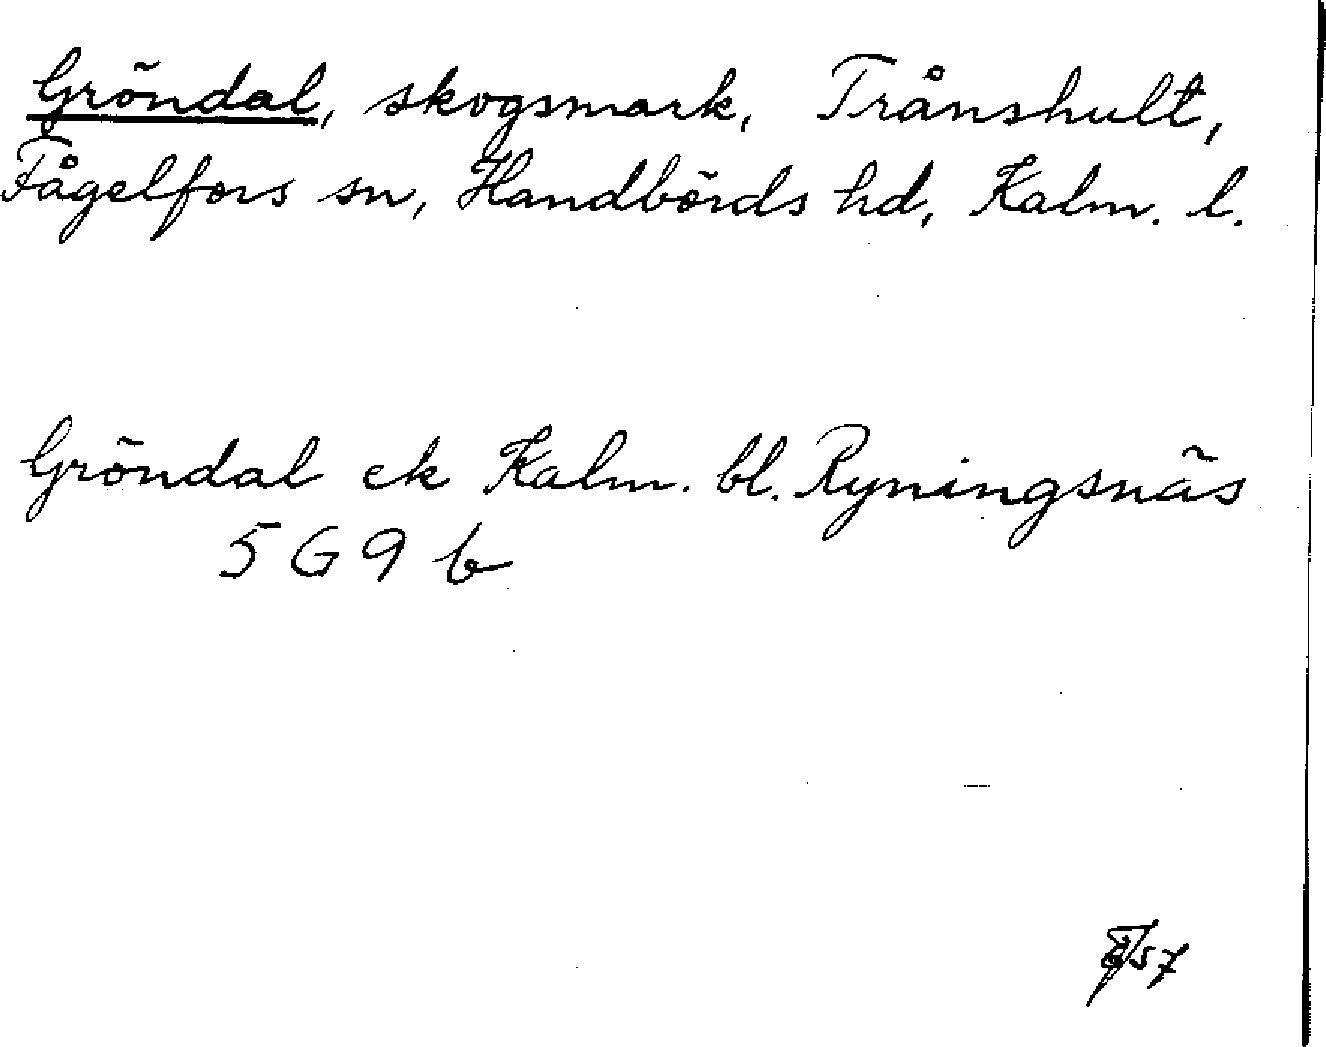 Gröndal, skogsmark, Trånshult,
Fågelfors sn, Handbörds hd, Kalm. l.
Gröndal ek Kalm. bl. Ryningsnäs
5 G 9 b